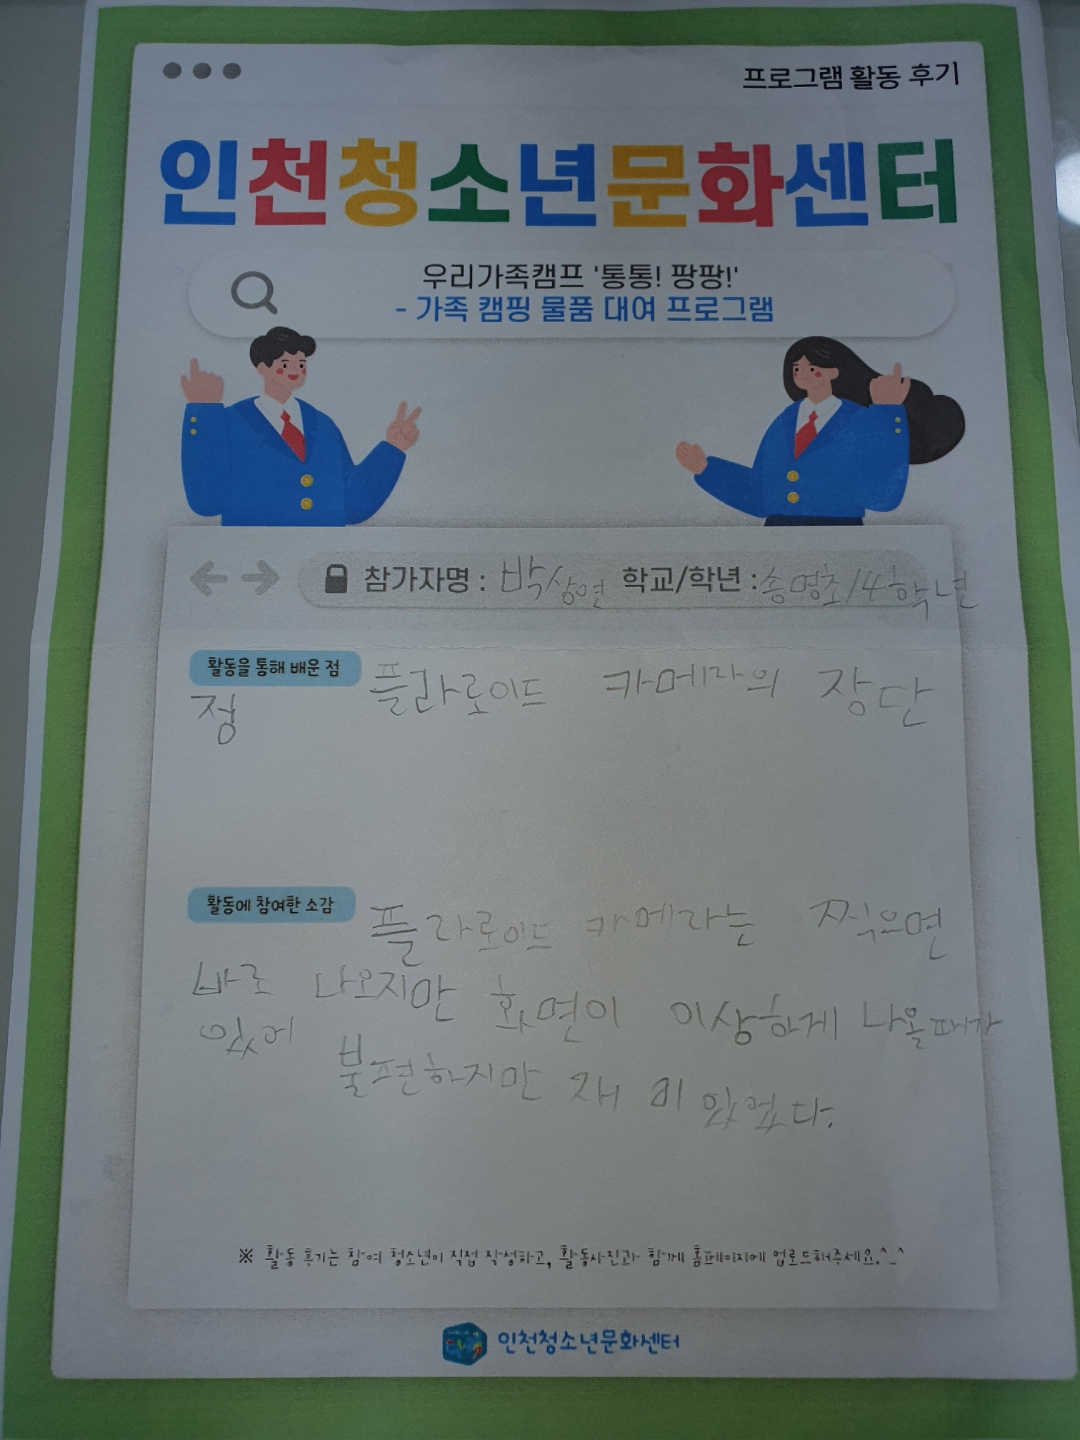 프로그램 활동 후기
인천청소년문화센터
우리가족캠프 '통통! 팡팡!'
- 가족 캠핑 물품 대여 프로그램
참가자명 : 박상연 학교/학년 : 송명초/4학년
활동을 통해 배운 점
플라로이드 카메라의 장단
점
활동에 참여한 소감
플라로이드 카메라는 찍으면
바로 나오지만 화면이 이상하게 나올때가
있어 불편하지만 재미있었다.
※ 활동 후기는 참여 청소년이 직접 작성하고, 활동사진과 함께 홈페이지에 업로드해주세요.^_^
인천청소년문화센터